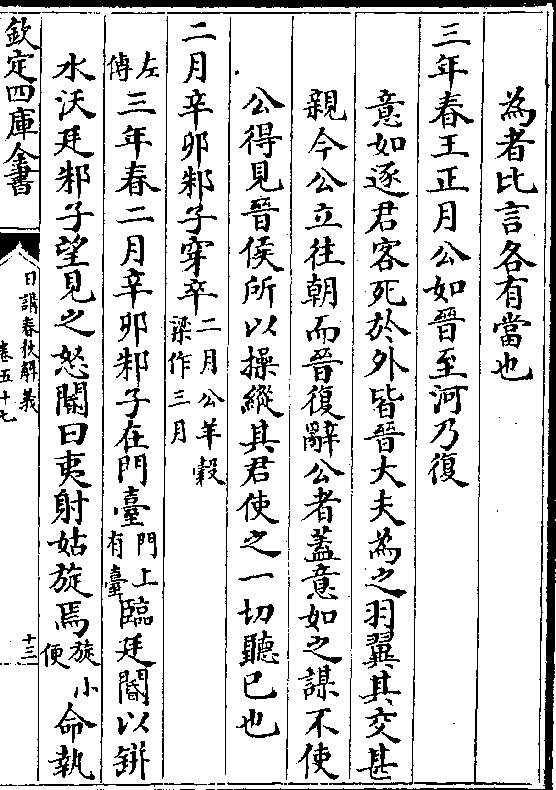 為者比言各有當也
三年春王正月公如晉至河乃復
意如逐君客死於外皆晉大夫為之羽翼其交甚
親今公立往朝而晉復辭公者蓋意如之謀不使
公得見晉侯所以操縱其君使之一切聽已也
二月辛卯邾子穿卒二月公羊穀梁作三月
左傳三年春二月辛卯邾子在門臺門上有臺臨廷閽以缾
水沃廷邾子望見之怒閽曰夷射姑旋焉旋小便命執
欽定四庫全書
日講春秋解義
卷五十七
十三